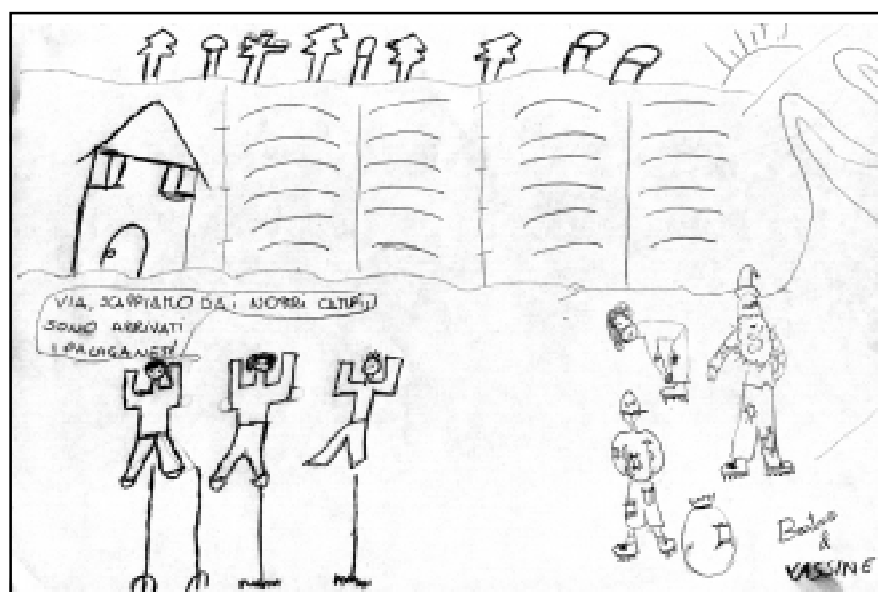 VIA, SCAPPIAMO DAI NOSTRI CAMPI,
SONO ARRIVATI
I PALAGANESI!
&
YASSINE